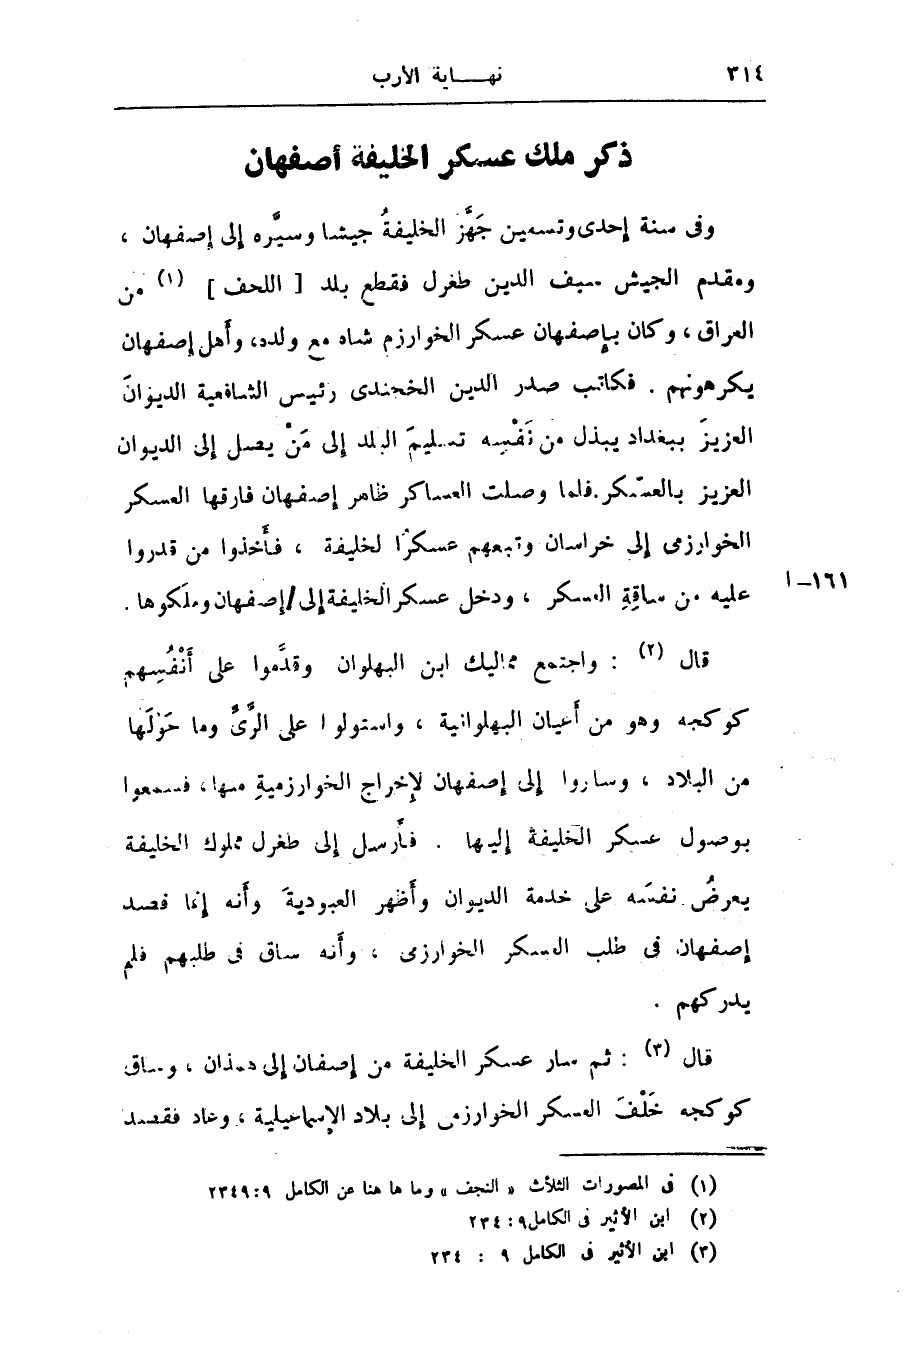 ٣١٤
نهـــاية الأرب
ذكر ملك عسكر الخليفة أصفهان
وفى سنة إحدى وتسعين جَهَّز الخليفةُ جيشا وسيَّره إلى إصفهان ،
ومقدم الجيش سيف الدين طغرل فقطع بلد [ اللحف ] (١) من
العراق ، وكان بإصفهان عسكر الخوارزم شاه مع ولده، وأهل إصفهان
يكرهونهم . فكاتب صدر الدين الخجندى رئيس الشافعية الديوانَ
العزيزَ ببغداد يبذل من نَفْسِه تسليمَ البلد إلى مَنْ يصل إلى الديوان
العزيز بالعسكر.فلما وصلت العساكر ظاهر إصفهان فارقها العسكر
الخوارزمى إلى خراسان وتبعهم عسكرُا لخليفة ، فأَخذوا من قدروا
عليه من ساقةِ العسكر ، ودخل عسكر الخليفة إلى/إصفهان وملكوها .
١٦١–ا
قال (٢) : واجتمع مماليك ابن البهلوان وقدَّموا على أَنْفُسِهم
كوكجه وهو من أَعيان البهلوانية ، واستولوا على الرَّىِّ وما حَوْلَها
من البلاد ، وساروا إلى إصفهان لإخراج الخوارزميةِ منها، فسمعوا
بوصول عسكر الخليفة إليها . فأَرسل إلى طغرل مملوك الخليفة
يعرضُ نفسَه على خدمة الديوان وأَظهر العبوديةَ وأَنه إنما قصد
إصفهان فى طلب العسكر الخوارزمى ، وأَنه ساق فى طلبهم فلم
يدركهم .
قال (٣) : ثم سار عسكر الخليفة من إصفان إلى همذان ، وساق
كوكجه خَلْفَ العسكر الخوارزمى إلى بلاد الإسماعيلية ، وعاد فقصد
(١) فى المصورات الثلاث « النجف » وما ها هنا عن الكامل ٩ : ٢٣٤٩
(٢) ابن الأثير فى الكامل ٩ : ٢٣٤
(٣) ابن الأثير فى الكامل ٩ : ٢٣٤